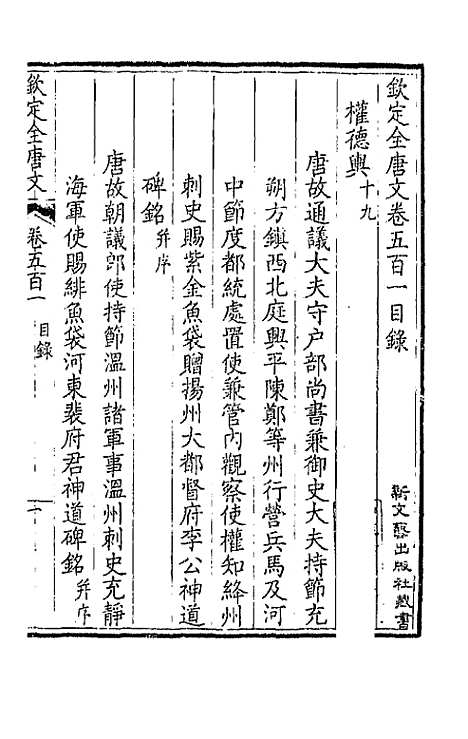 欽定全唐文卷五百一目錄
新文藝出版社藏書
權德輿十九
唐故通議大夫守戶部尚書兼御史大夫持節充
朔方鎮西北庭興平陳鄭等州行營兵馬及河
中節度都統處置使兼管內觀察使權知絳州
刺史賜紫金魚袋贈揚州大都督府李公神道
碑銘并序
唐故朝議郎使持節溫州諸軍事溫州刺史充靜
海軍使賜緋魚袋河東裴府君神道碑銘并序
欽定全唐文 卷五百一 目錄 一